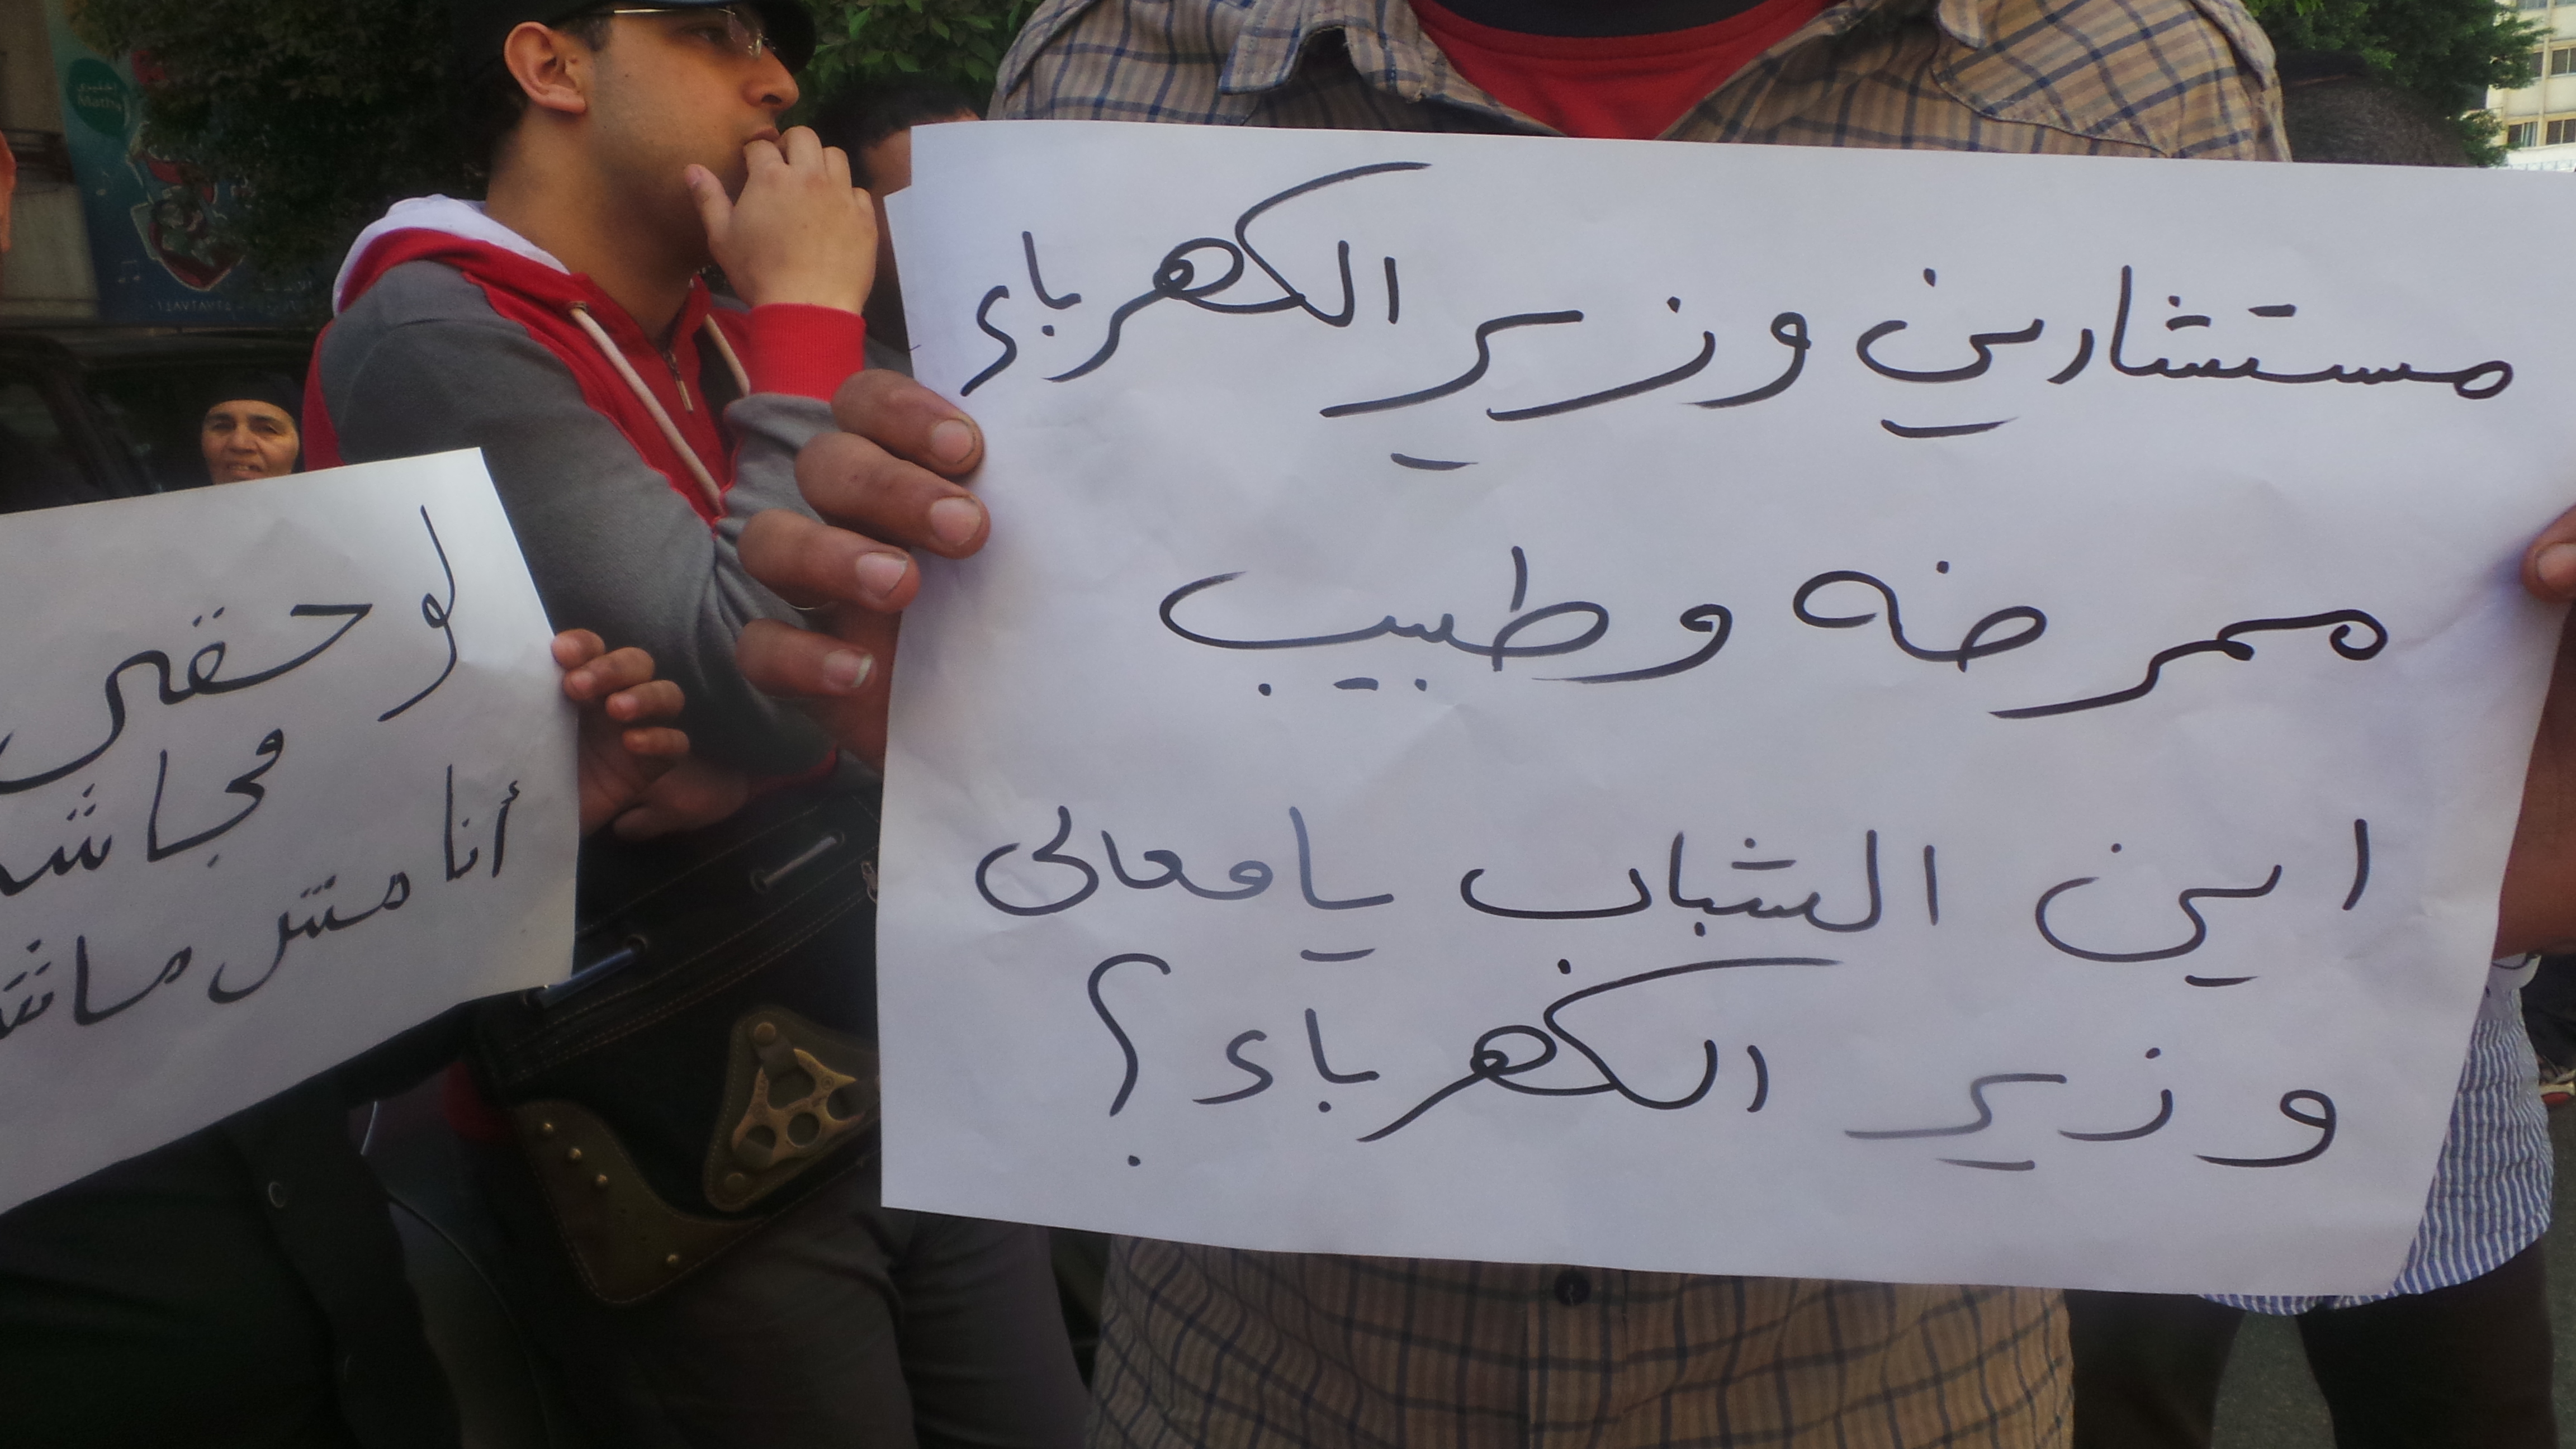 مستشارين وزير الكهرباء
ممرضه وطبيب
اين الشباب يا معالى
وزير الكهرباء؟
لو حقى
مجاش
أنا مش ماش
Maths